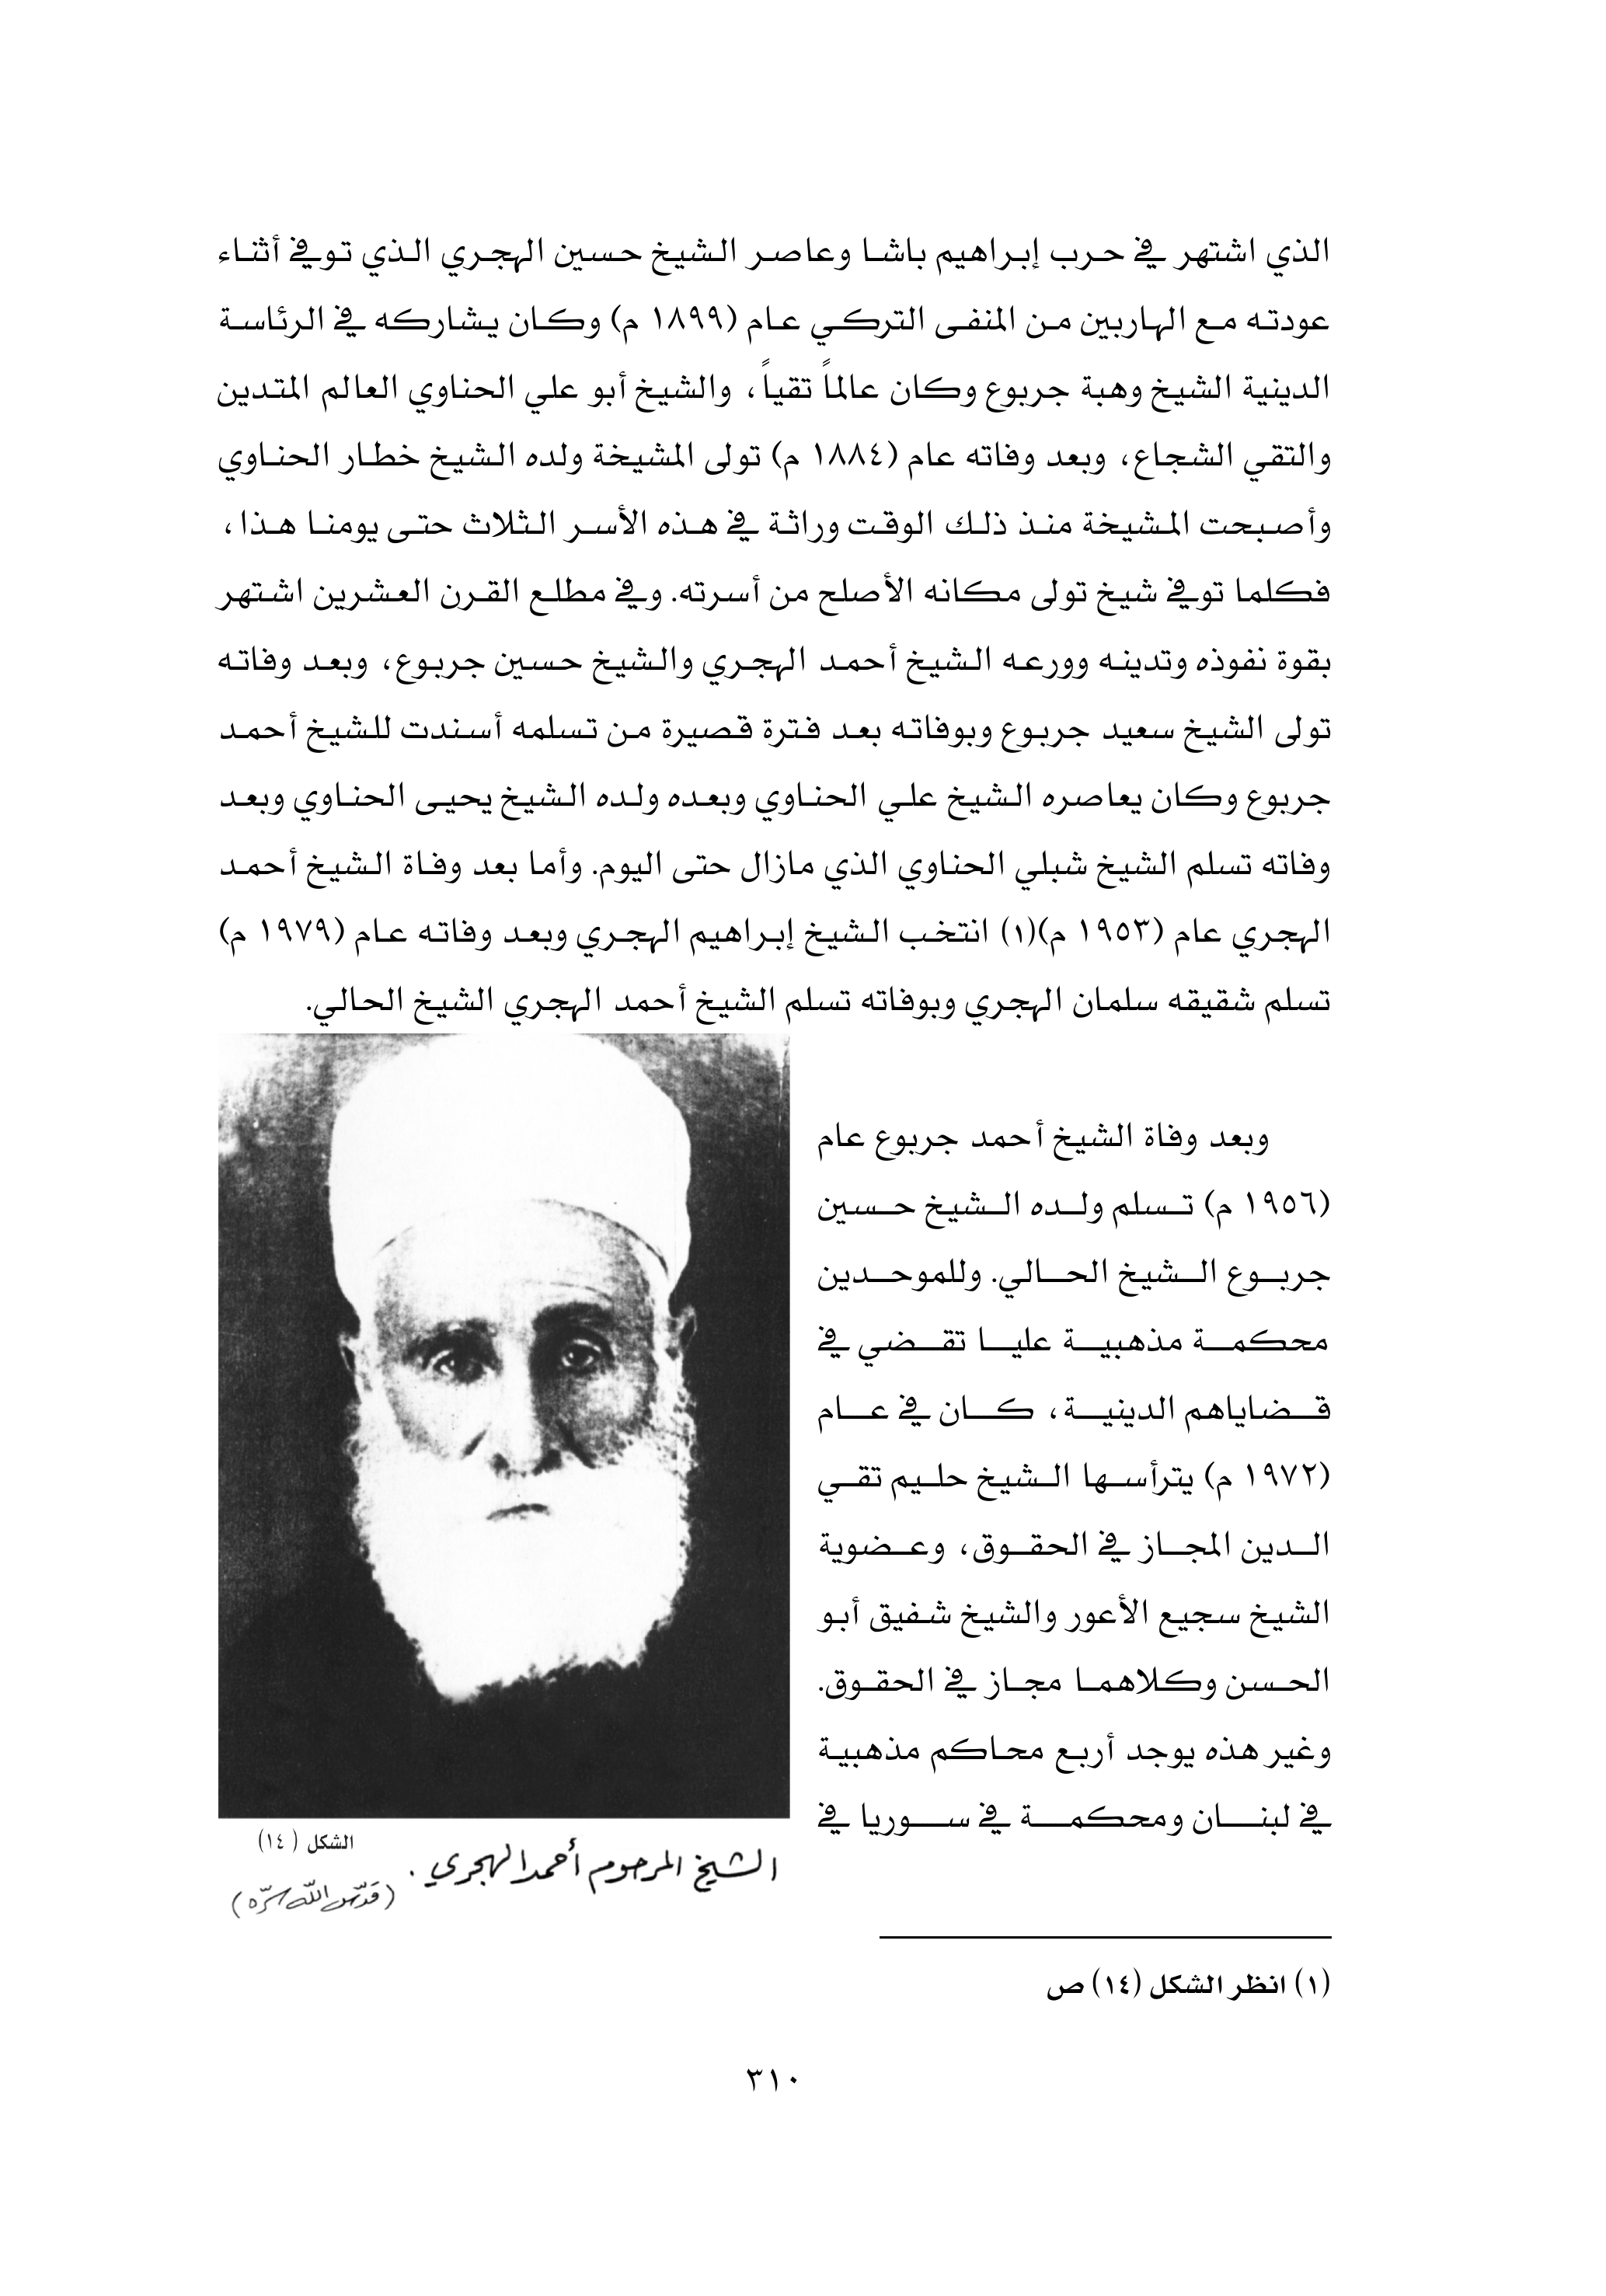 الذي اشتهر في حرب إبراهيم باشا وعاصر الشيخ حسين الهجري الذي توفي أثناء
عودته مع الهاربين من المنفى التركي عام (١٨٩٩ م) وكان يشاركه في الرئاسة
الدينية الشيخ وهبة جربوع وكان عالماً تقياً، والشيخ أبو علي الحناوي العالم المتدين
والتقي الشجاع، وبعد وفاته عام (١٨٨٤ م) تولى المشيخة ولده الشيخ خطار الحناوي
وأصبحت المشيخة منذ ذلك الوقت وراثة في هذه الأسر الثلاث حتى يومنا هذا،
فكلما توفي شيخ تولى مكانه الأصلح من أسرته. وفي مطلع القرن العشرين اشتهر
بقوة نفوذه وتدينه وورعه الشيخ أحمد الهجري والشيخ حسين جربوع، وبعد وفاته
تولى الشيخ سعيد جربوع وبوفاته بعد فترة قصيرة من تسلمه أسندت للشيخ أحمد
جربوع وكان يعاصره الشيخ علي الحناوي وبعده ولده الشيخ يحيى الحناوي وبعد
وفاته تسلم الشيخ شبلي الحناوي الذي مازال حتى اليوم. وأما بعد وفاة الشيخ أحمد
الهجري عام (١٩٥٣ م)(١) انتخب الشيخ إبراهيم الهجري وبعد وفاته عام (١٩٧٩ م)
تسلم شقيقه سلمان الهجري وبوفاته تسلم الشيخ أحمد الهجري الشيخ الحالي.
وبعد وفاة الشيخ أحمد جربوع عام
(١٩٥٦ م) تسلم ولده الشيخ حسين
جربوع الشيخ الحالي. وللموحدين
محكمة مذهبية عليا تقضي في
قضاياهم الدينية، كان في عام
(١٩٧٢ م) يترأسها الشيخ حليم تقي
الدين المجاز في الحقوق، وعضوية
الشيخ سجيع الأعور والشيخ شفيق أبو
الحسن وكلاهما مجاز في الحقوق.
وغير هذه يوجد أربع محاكم مذهبية
في لبنان ومحكمة في سوريا في
الشكل (١٤)
الشيخ المرحوم أحمد الهجري.
(قدّس اللّه سرّه)
(١) انظر الشكل (١٤) ص
٣١٠